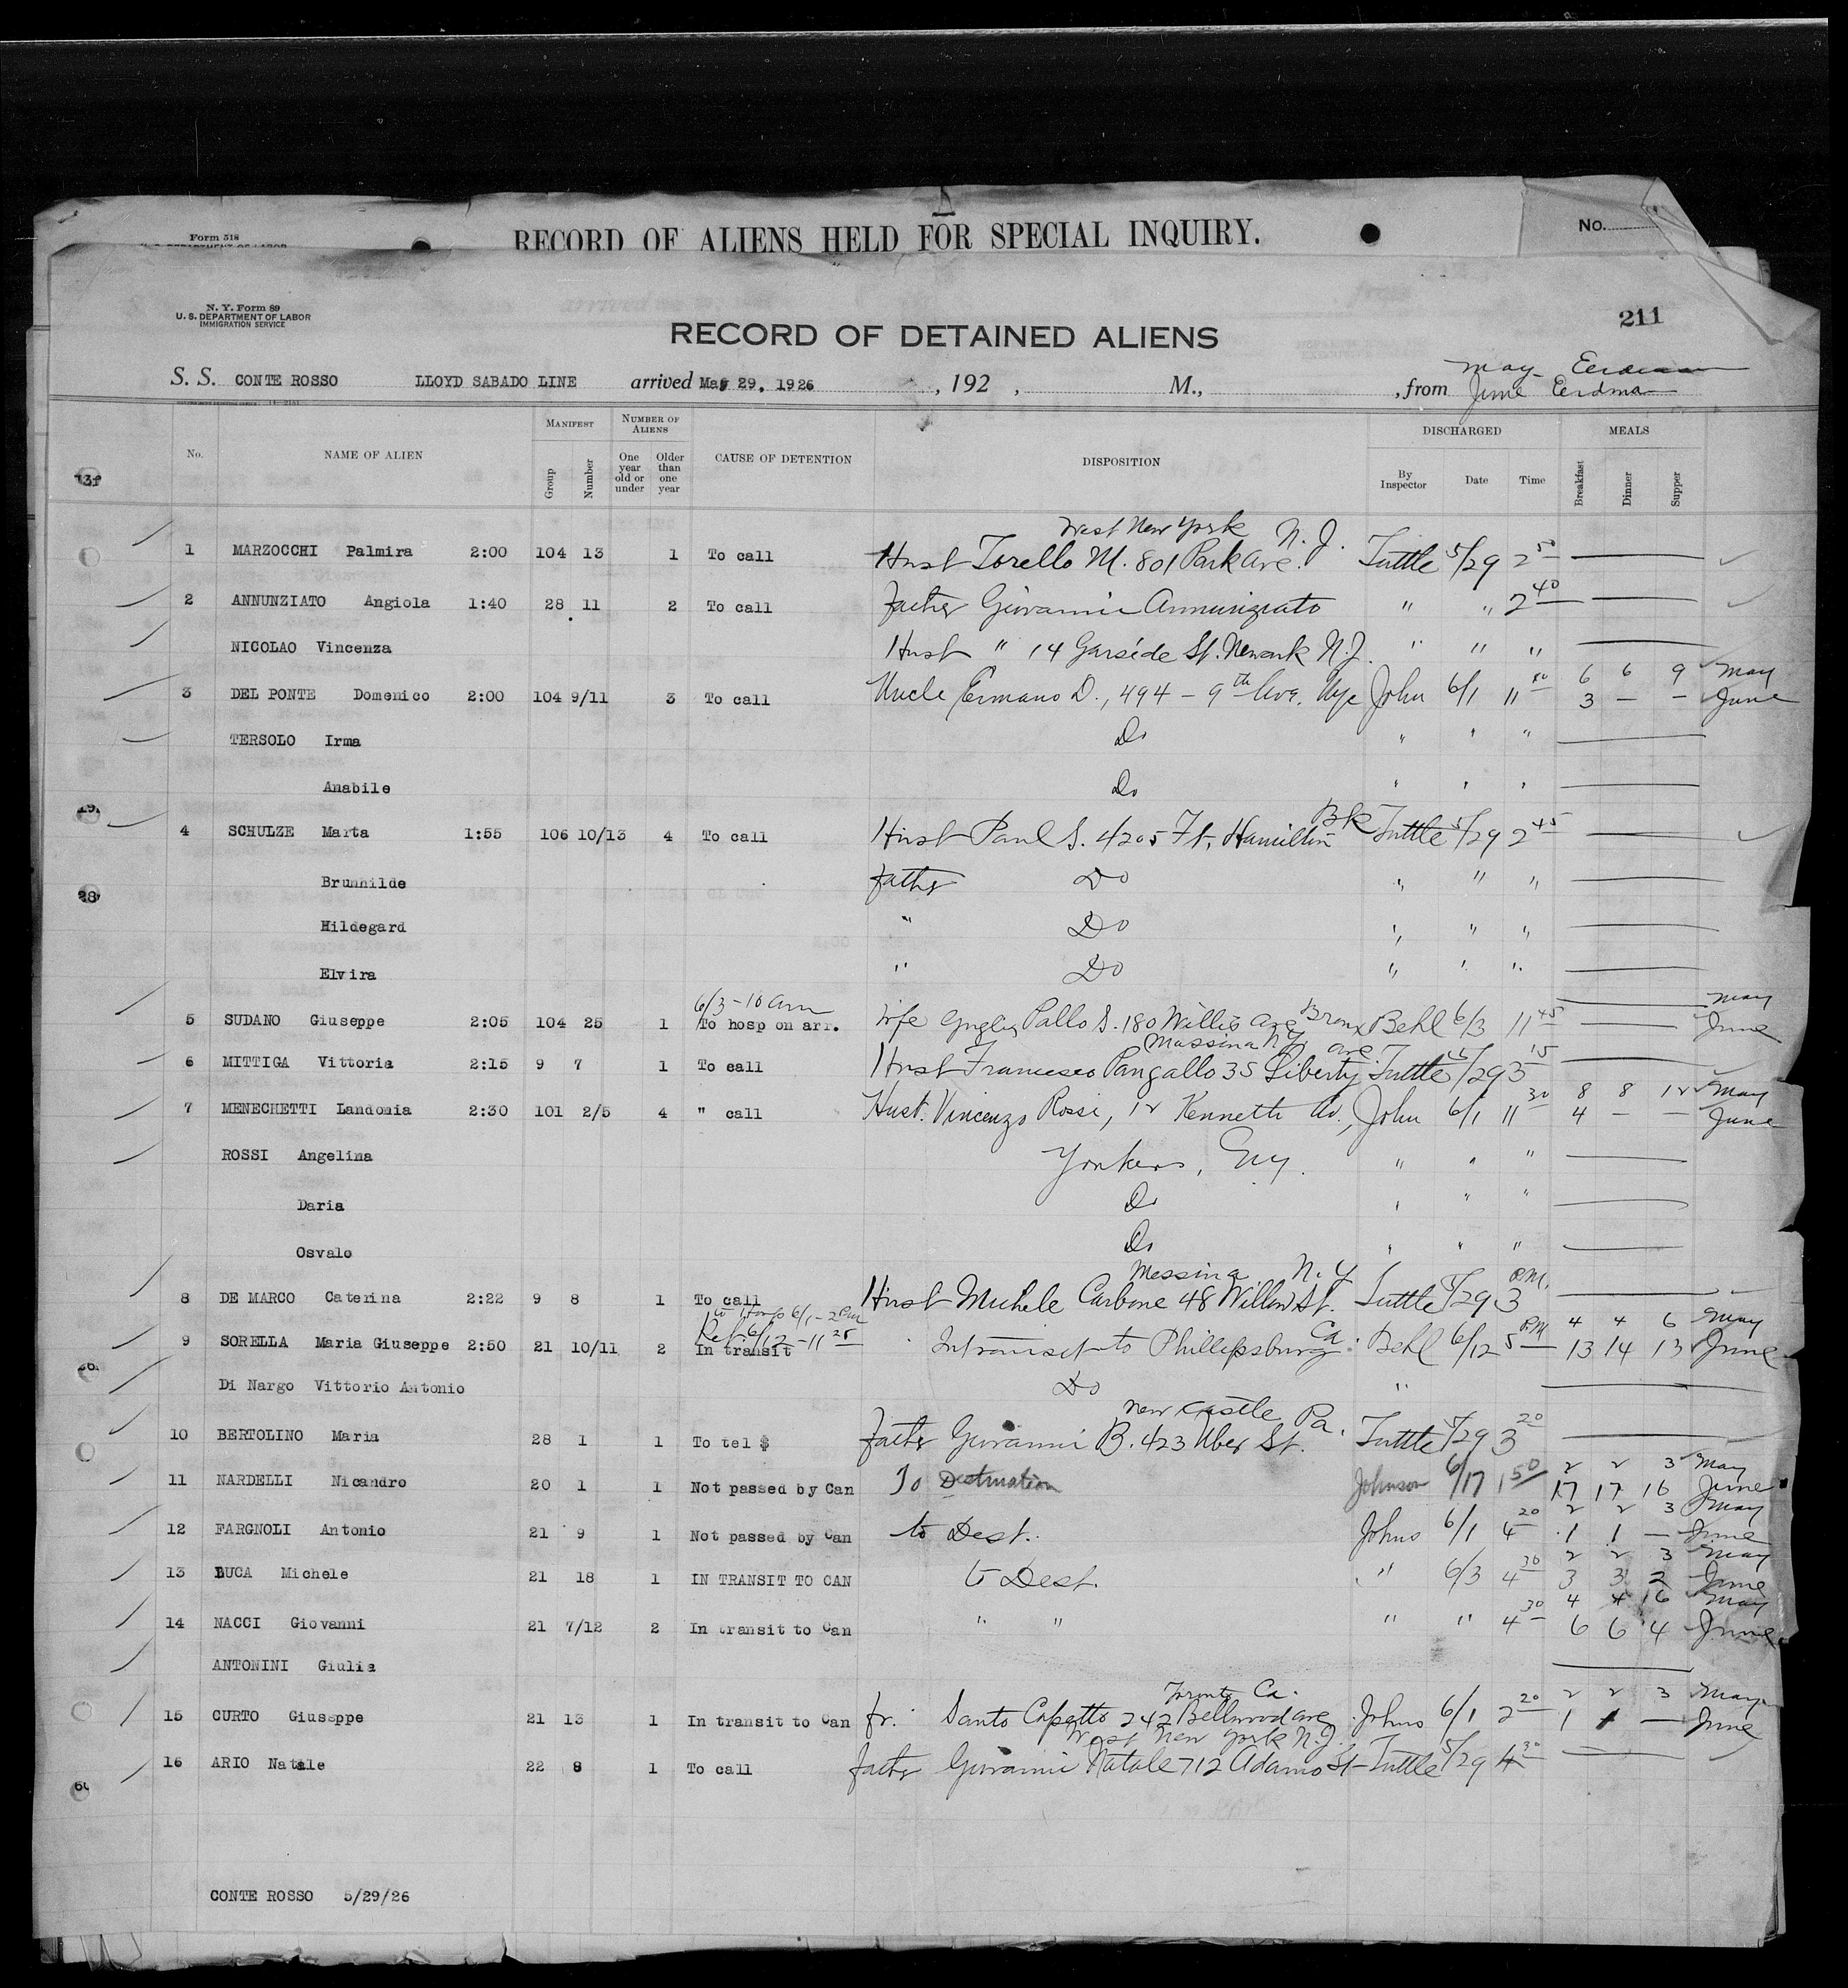 Form 518
RECORD OF ALIENS HELD FOR SPECIAL INQUIRY.
No.
N. Y. Form 89
U. S. DEPARTMENT OF LABOR
IMMIGRATION SERVICE
211
RECORD OF DETAINED ALIENS
May Eerdman
S. S. CONTE ROSSO LLOYD SABADO LINE arrived May 29, 1926 , 192 , M., , from June Eerdman
No. NAME OF ALIEN MANIFEST Group Number NUMBER OF ALIENS One year old or under Older than one year CAUSE OF DETENTION DISPOSITION DISCHARGED By Inspector Date Time MEALS Breakfast Dinner Supper
West New York N. J.
1 MARZOCCHI Palmira 2:00 104 13 1 To call Husb Torello M. 801 Park Ave. Tuttle 5/29 2 50
2 ANNUNZIATO Angiola 1:40 28 11 2 To call Father Giovanni Annunziato " " 2 40
NICOLAO Vincenza Husb " 14 Garside St. Newark N.J. " " "
3 DEL PONTE Domenico 2:00 104 9/11 3 To call Uncle Ermano D., 494 - 9th Ave. Nyc John 6/1 11 6 6 9 May
3 – – June
TERSOLO Irma Do " " "
Anabile Do " " "
4 SCHULZE Marta 1:55 106 10/13 4 To call Husb Paul S. 4205 Ft. Hamilton Bk Tuttle 5/29 2 45
Brunhilde father Do " " "
Hildegard " Do " " "
Elvira " Do " " "
6/3 - 10 am
May
5 SUDANO Giuseppe 2:05 104 25 1 To hosp on arr. Wife Pallo S. 180 Willis Ave Bronx Behl 6/3 11 45 June
Massina N.Y.
6 MITTIGA Vittoria 2:15 9 7 1 To call Husb Francesco Pangallo 35 Liberty Ave Tuttle 5/29 3 15
7 MENECHETTI Landomia 2:30 101 2/5 4 " call Husb. Vincenzo Rossi, 12 Kenneth Av., John 6/1 11 30 8 8 12 May
4 – – June
ROSSI Angelina Yonkers, Ny. " " "
Daria Do " " "
Osvalo Do " " "
Messina N. Y.
8 DE MARCO Caterina 2:22 9 8 1 To call Husb Michele Carbone 48 Willow St. Tuttle 5/29 3 P.M.
to Hosp 6/1 - 2 Pm
Ret. 6/12 - 11 25
4 4 6 May
9 SORELLA Maria Giuseppe 2:50 21 10/11 2 In transit Intransit to Phillipsburg Ca. Behl 6/12 5 PM 13 14 13 June
Di Nargo Vittorio Antonio Do "
New Castle Pa.
10 BERTOLINO Maria 28 1 1 To tel $ Father Giovanni B. 423 Uber St. Tuttle 5/29 3 20
2 2 3 May
11 NARDELLI Nicandro 20 1 1 Not passed by Can To Destination Johnson 6/17 1 50 17 17 16 June
2 2 3 May
12 FARGNOLI Antonio 21 9 1 Not passed by Can to Dest. Johns 6/1 4 20 1 1 – June
2 2 3 May
13 LUCA Michele 21 18 1 IN TRANSIT TO CAN to Dest. " 6/3 4 30 3 3 2 June
4 4 16 May
14 NACCI Giovanni 21 7/12 2 In transit to Can " " " " 4 30 6 6 4 June
ANTONINI Giulia
Toronto Ca.
2 2 3 May
15 CURTO Giuseppe 21 13 1 In transit to Can fr. Santo Cupetto 242 Bellwood Ave Johns 6/1 2 20 1 1 – June
West New York N.J.
16 ARIO Natale 22 8 1 To call father Giovanni Natale 712 Adams St - Tuttle 5/29 4 30
CONTE ROSSO 5/29/26